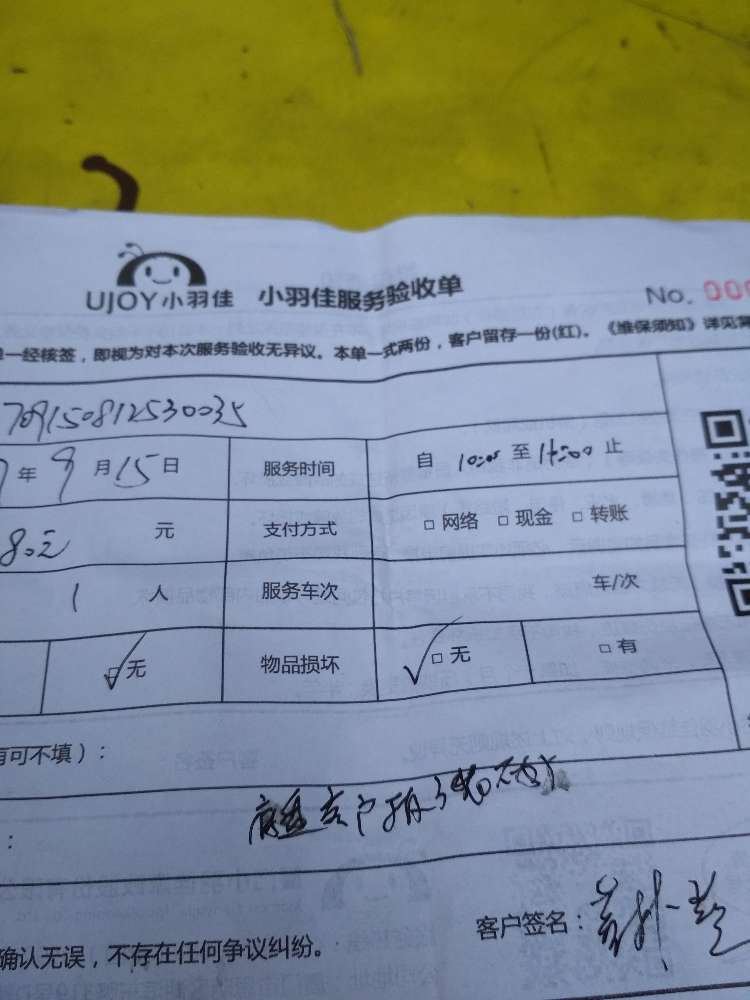 UJOY小羽佳 小羽佳服务验收单 No. 000
单一经核签，即视为对本次服务验收无异议。本单一式两份，客户留存一份(红)。《维保须知》详见背
709150812530035
7年9月15日 服务时间 自 至 止
80元 元 支付方式 □ 网络 □ 现金 □ 转账
1 人 服务车次 车/次
□ 无 物品损坏 □ 无 □ 有
有可不填）：
：
客户签名：
确认无误，不存在任何争议纠纷。